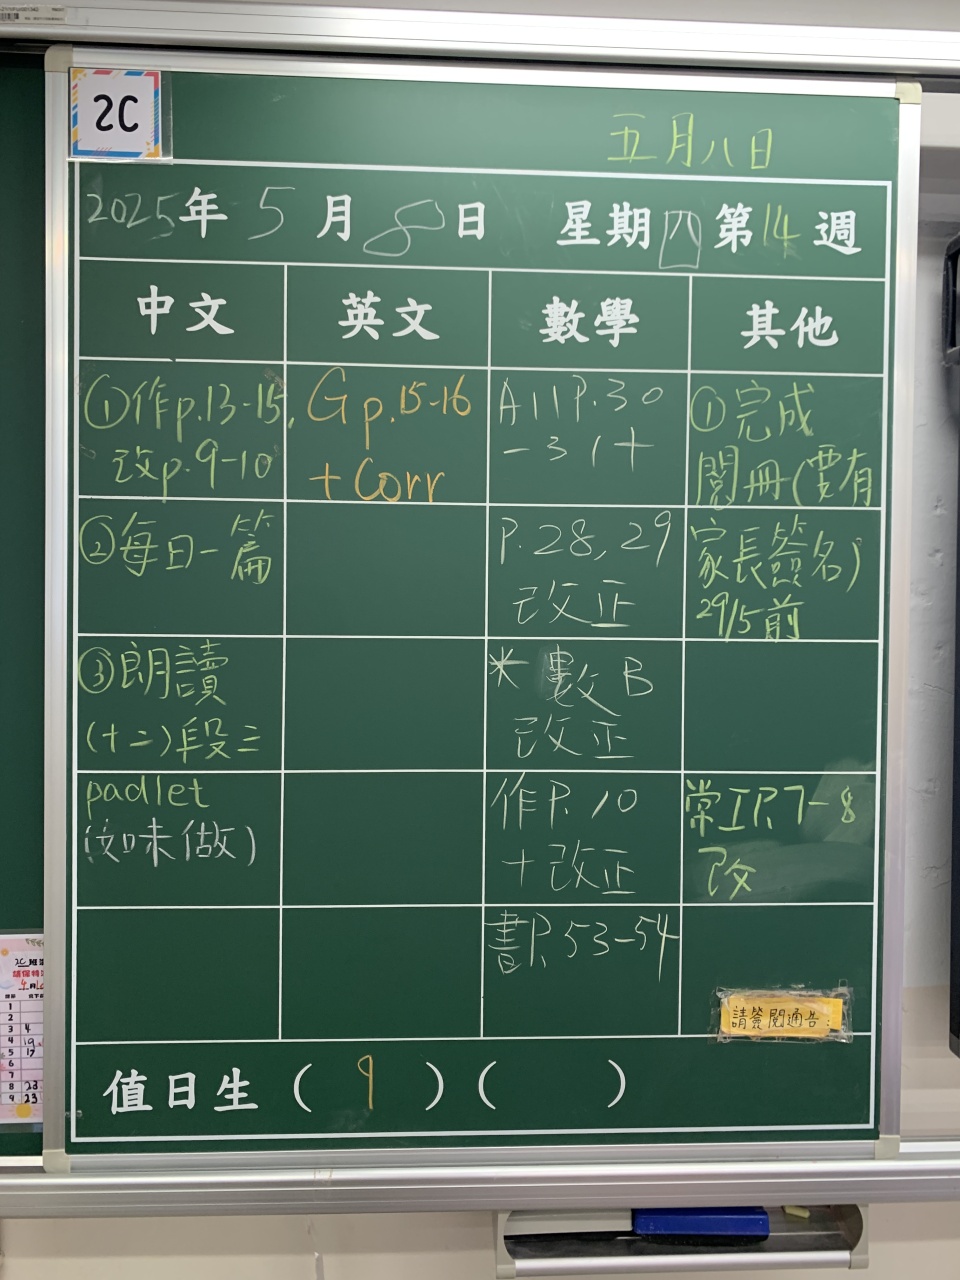 2C
五月八日
2025年5月8日 星期四第14週
中文 英文 數學 其他
①作p.13-15,
改p.9-10
Gp.15-16
+Corr
A11P.30
-31+
①完成
閱冊(要有
②每日一篇
P.28,29
改正
家長簽名)
29/5前
③朗讀
(十二)段三
*數B
改正
padlet
做)
作P.10
+改正
常工P.7-8
改
書P.53-54
請簽閱通告
值日生(9)( )
1
2
3 4
4 19
5 17
6
7
8 23
9 23